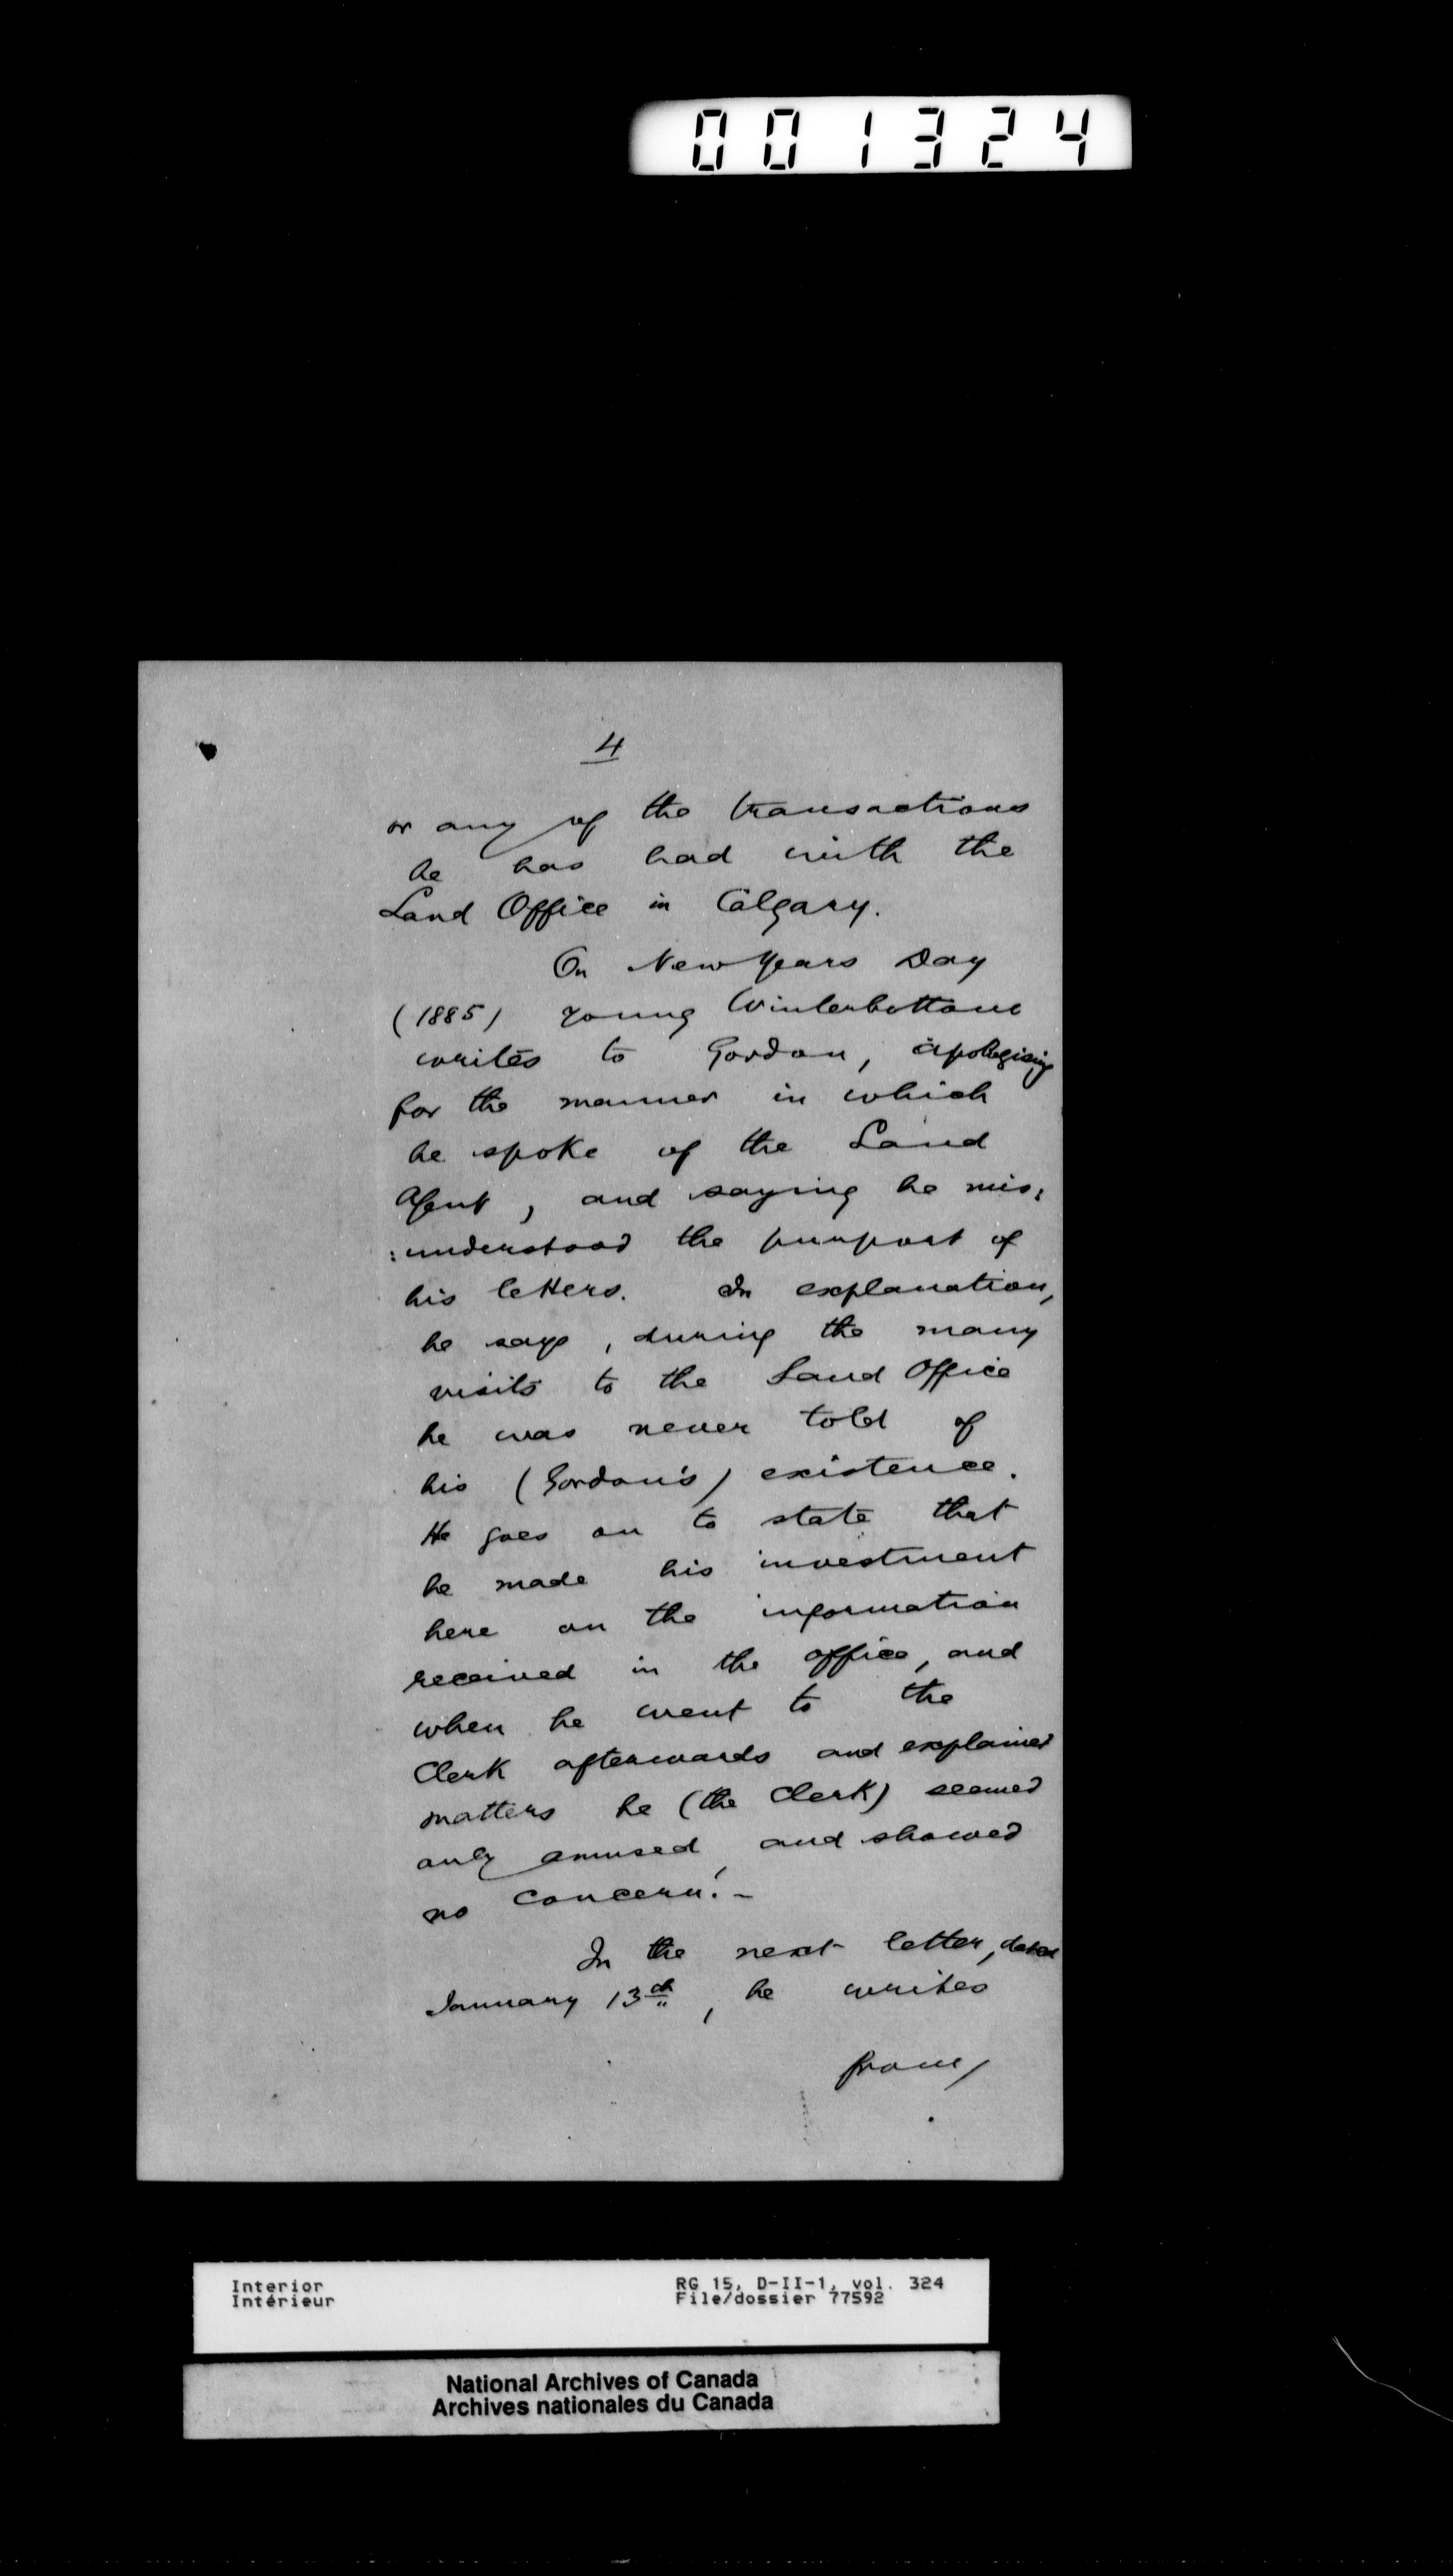 001324
4
or any of the transactions
he has had with the
Land Office in Calgary.
On New Years Day
(1885) young Winterbottom
writes to Gordon, apologising
for the manner in which
he spoke of the Land
Agent, and saying he mis:
:understood the purport of
his letters. In explanation,
he says, during the many
visits to the Land Office
he was never told of
his (Gordon's) existence.
He goes on to state that
he made his investment
here on the information
received in the office, and
when he went to the
Clerk afterwards and explained
matters he (the Clerk) seemed
only amused, and showed
no concern! -
In the next letter, dated
January 13th, he writes
from/
Interior
Intérieur
RG 15, D-II-1, vol. 324
File/dossier 77592
National Archives of Canada
Archives nationales du Canada